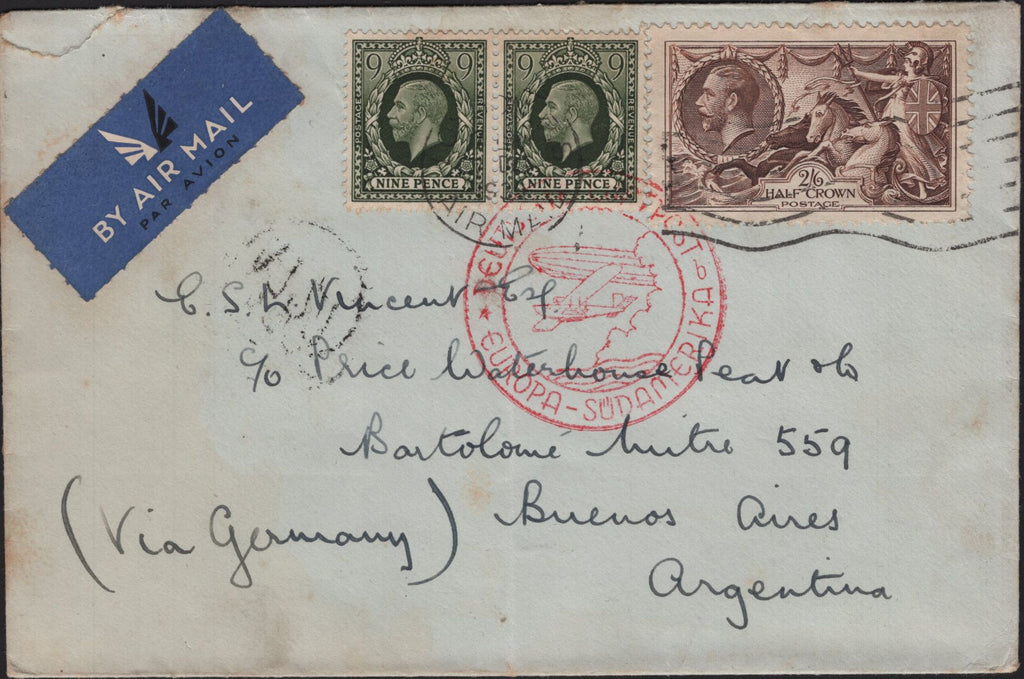 BY AIR MAIL
PAR AVION
9 9
POSTAGE REVENUE
NINE PENCE
9 9
POSTAGE REVENUE
NINE PENCE
2/6
HALF CROWN
POSTAGE
AIR MA
EUROPA - SÜDAMERIKA b
Vincent Esq.
c/o Price Waterhouse Peat & Co
Bartolomé Mitre 559
Buenos Aires
Argentina
(Via Germany)